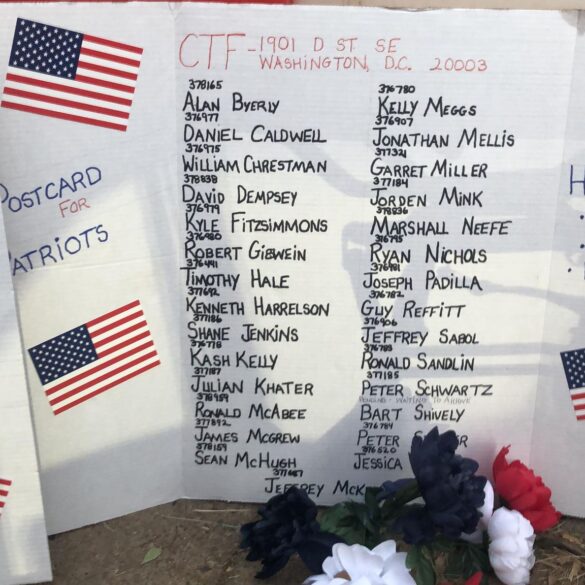 CTF - 1901 D ST SE
WASHINGTON, D.C. 20003
POSTCARD
FOR
PATRIOTS
378165
ALAN BYERLY
376977
DANIEL CALDWELL
376975
WILLIAM CHRESTMAN
378838
DAVID DEMPSEY
376979
KYLE FITZSIMMONS
376980
ROBERT GIBWEIN
376441
TIMOTHY HALE
377642
KENNETH HARRELSON
377186
SHANE JENKINS
376718
KASH KELLY
377187
JULIAN KHATER
378959
RONALD MCABEE
377842
JAMES MCGREW
378159
SEAN MCHUGH
376780
KELLY MEGGS
376907
JONATHAN MELLIS
377321
GARRET MILLER
377184
JORDEN MINK
378836
MARSHALL NEEFE
376795
RYAN NICHOLS
376981
JOSEPH PADILLA
376782
GUY REFFITT
376906
JEFFREY SABOL
376783
RONALD SANDLIN
377185
PETER SCHWARTZ
BART SHIVELY
376784
PETER
376520
JESSICA
377657
JEFFREY MCK
H